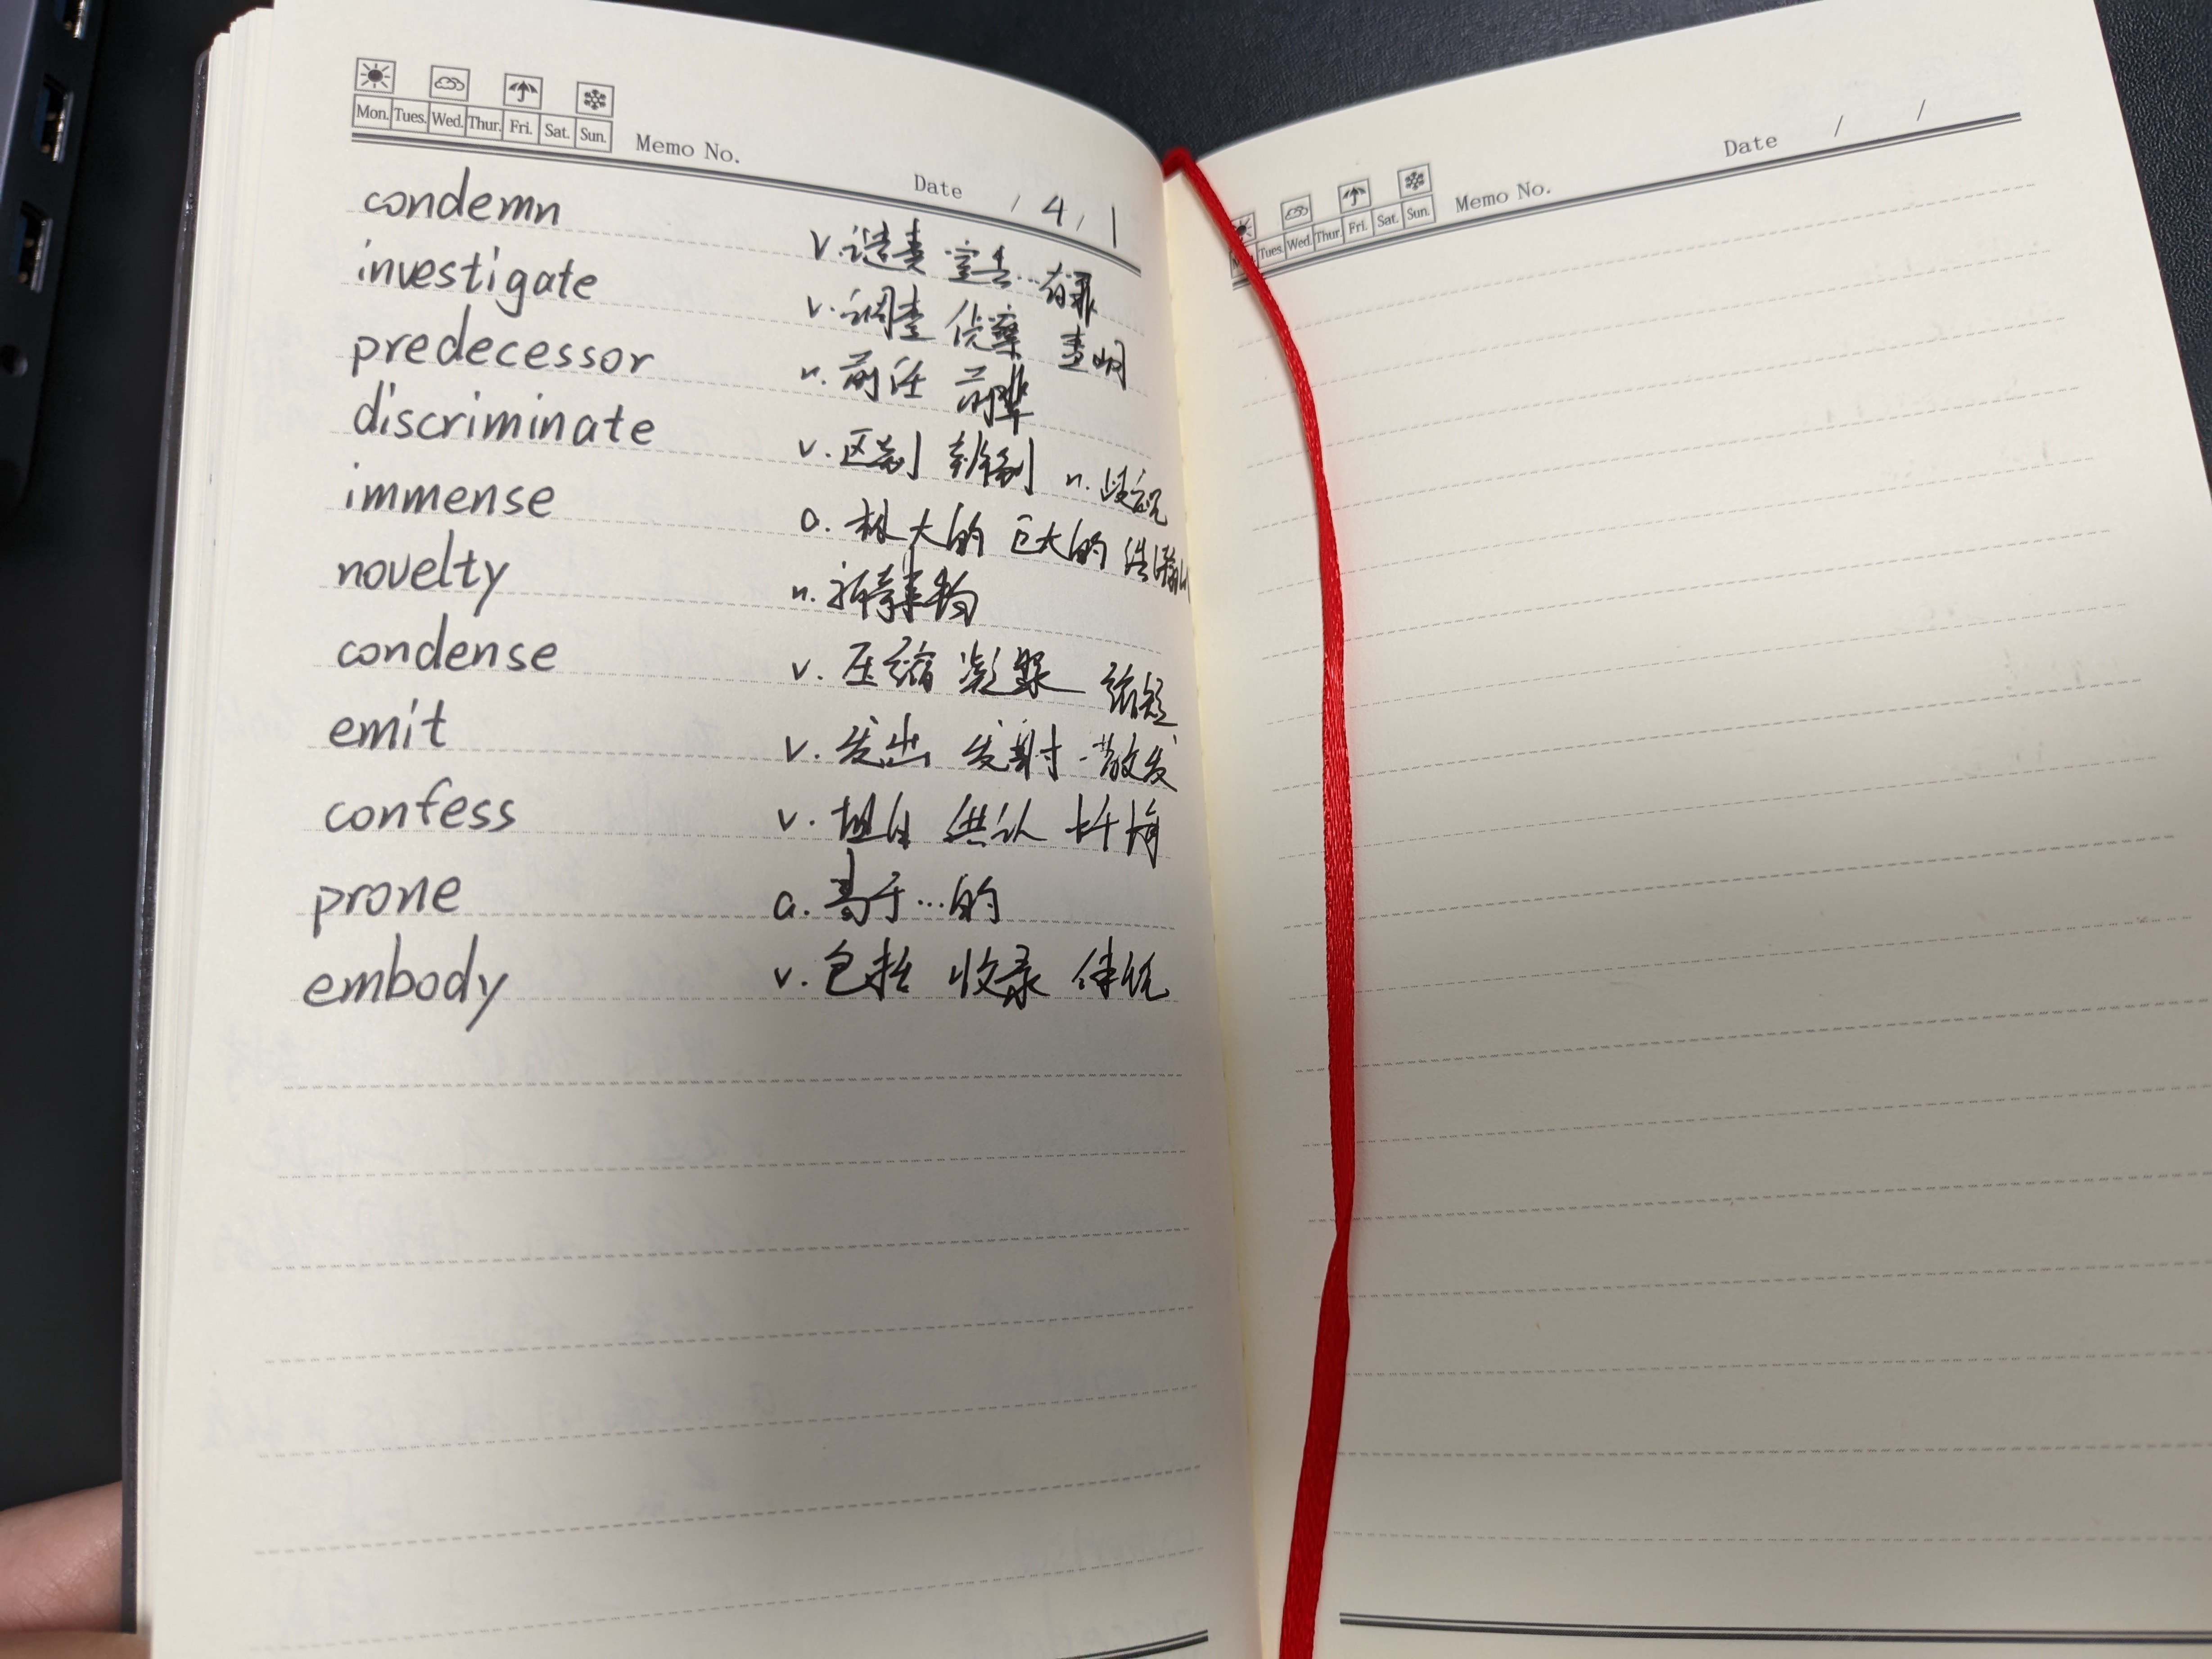 Mon. Tues. Wed. Thur. Fri. Sat. Sun. Memo No.
Date / 4 / 1
condemn v. 谴责 宣告…有罪
investigate v. 调查 侦察 查明
predecessor n. 前任 前辈
discriminate v. 区别 辨别 n. 歧视
immense a. 极大的 巨大的
novelty n. 新奇事物
condense v. 压缩 凝聚 缩短
emit v. 发出 发射 散发
confess v. 坦白 供认 忏悔
prone a. 易于…的
embody v. 包括 收录 体现
Tues. Wed. Thur. Fri. Sat. Sun. Memo No.
Date / /